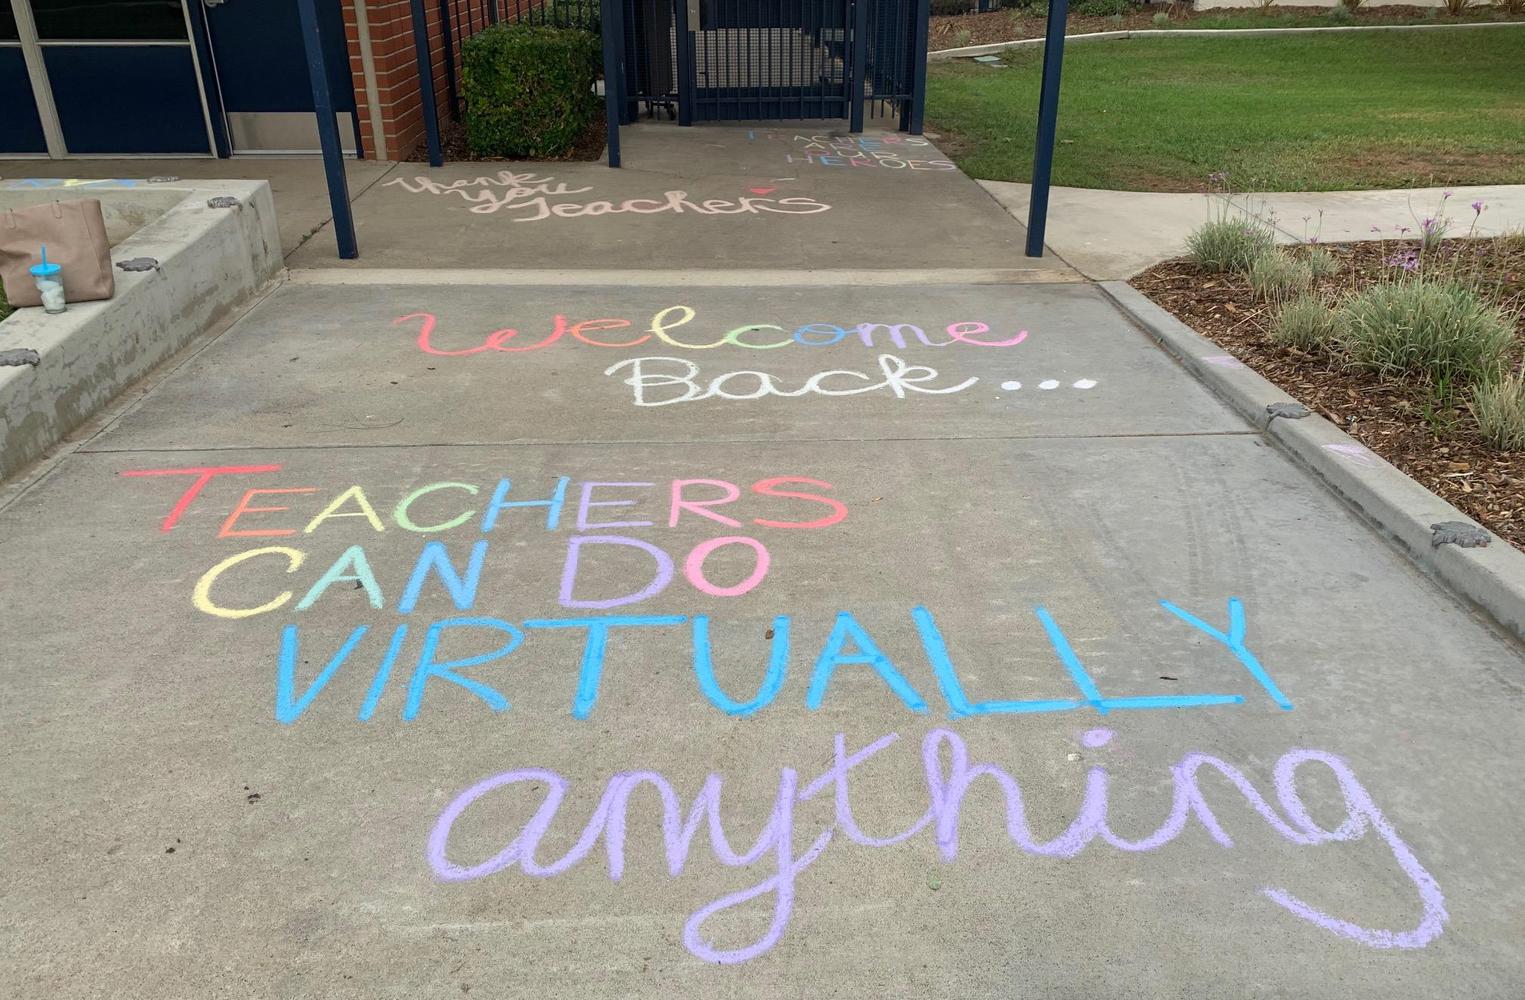 TEACHERS
ARE
OUR
HEROES
Thank
you
Teachers
Welcome
Back...
TEACHERS
CAN DO
VIRTUALLY
anything